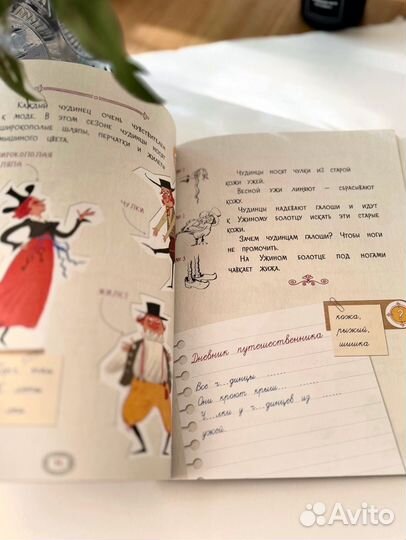 Каждый чудинец очень чувствителен
к моде. В этом сезоне чудинцы носят
широкополые шляпы, перчатки и жилеты
мышиного цвета.
широкополая
шляпа
чулки
жилет
Чудинцы носят чулки из старой
кожи ужей.
Весной ужи линяют – сбрасывают
кожу.
Чудинцы надевают галоши и идут
к Ужиному болотцу искать эти старые
кожи.
Зачем чудинцам галоши? Чтобы ноги
не промочить.
На Ужином болотце под ногами
чавкает жижа.
?
кожа,
рыжий,
шишка
Дневник путешественника
Все ч...динцы ......
Они кроют крыш.........
Ч...лки у ч...динцов из ......
ужей.
Avito